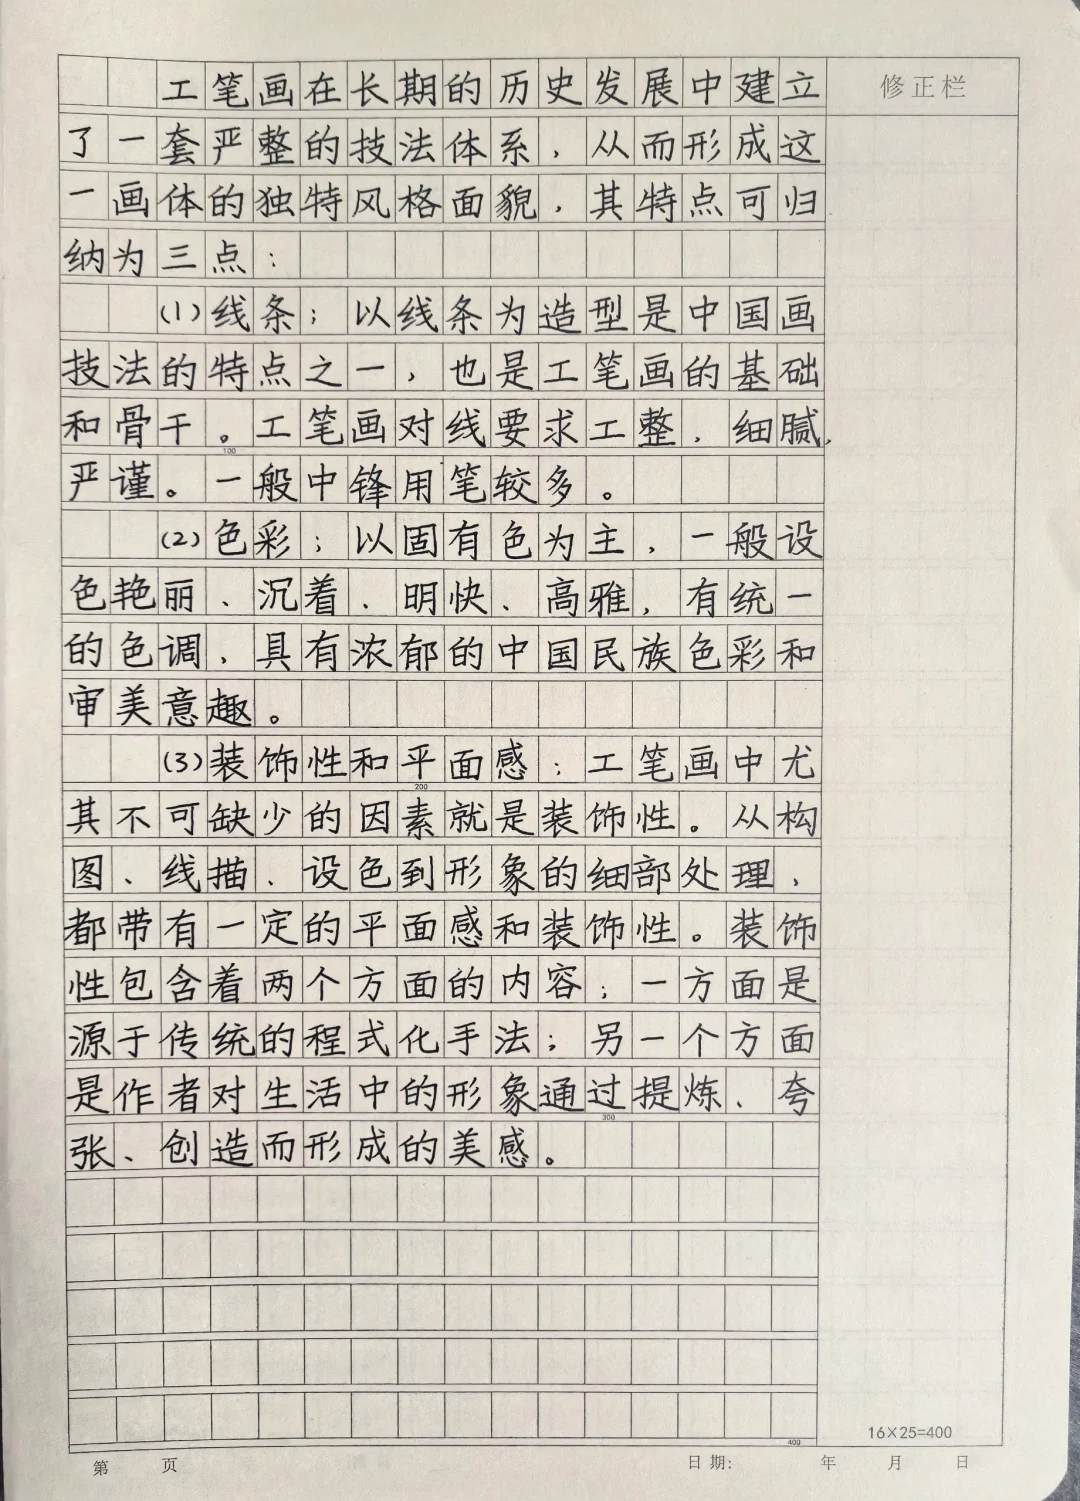 修正栏
工笔画在长期的历史发展中建立
了一套严整的技法体系，从而形成这
一画体的独特风格面貌，其特点可归
纳为三点：
(1)线条；以线条为造型是中国画
技法的特点之一，也是工笔画的基础
和骨干。工笔画对线要求工整、细腻、
100
严谨。一般中锋用笔较多。
(2)色彩；以固有色为主，一般设
色艳丽、沉着、明快、高雅，有统一
的色调、具有浓郁的中国民族色彩和
审美意趣。
(3)装饰性和平面感：工笔画中尤
200
其不可缺少的因素就是装饰性。从构
图、线描、设色到形象的细部处理，
都带有一定的平面感和装饰性。装饰
性包含着两个方面的内容；一方面是
源于传统的程式化手法；另一个方面
是作者对生活中的形象通过提炼、夸
300
张、创造而形成的美感。
400
16×25=400
第 页 日期: 年 月 日